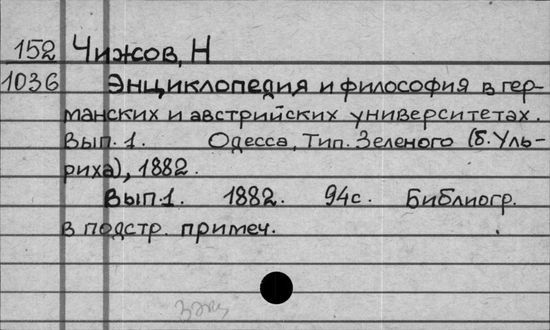 152 Чижов, Н
1036 Энциклопедия и философия в гер-
манских и австрийских университетах.
Вып. 1. Одесса, Тип. Зеленого (б. Уль-
риха), 1882.
Вып.1. 1882. 94с. Библиогр.
в подстр. примеч.